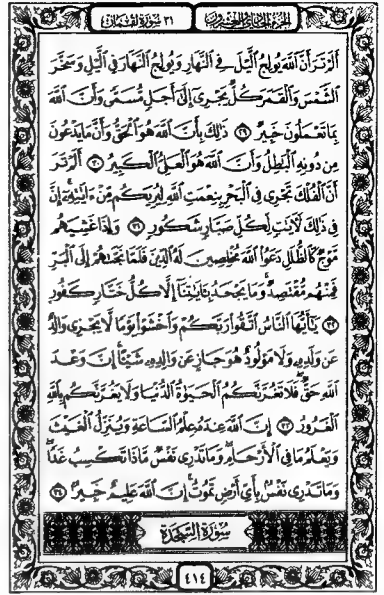 الجزء الحادي والعشرون
٣١ سورة لقمان
أَلَمْ تَرَ أَنَّ اللَّهَ يُولِجُ الَّيْلَ فِي النَّهَارِ وَيُولِجُ النَّهَارَ فِي الَّيْلِ وَسَخَّرَ
الشَّمْسَ وَالْقَمَرَ كُلٌّ يَجْرِي إِلَىٰ أَجَلٍ مُّسَمًّى وَأَنَّ اللَّهَ
بِمَا تَعْمَلُونَ خَبِيرٌ ٢٩ ذَٰلِكَ بِأَنَّ اللَّهَ هُوَ الْحَقُّ وَأَنَّ مَا يَدْعُونَ
مِن دُونِهِ الْبَٰطِلُ وَأَنَّ اللَّهَ هُوَ الْعَلِيُّ الْكَبِيرُ ٣٠ أَلَمْ تَرَ
أَنَّ الْفُلْكَ تَجْرِي فِي الْبَحْرِ بِنِعْمَتِ اللَّهِ لِيُرِيَكُم مِّنْ ءَايَٰتِهِۦٓ إِنَّ
فِي ذَٰلِكَ لَأٓيَٰتٍ لِّكُلِّ صَبَّارٍ شَكُورٍ ٣١ وَإِذَا غَشِيَهُم
مَّوْجٌ كَالظُّلَلِ دَعَوُا اللَّهَ مُخْلِصِينَ لَهُ الدِّينَ فَلَمَّا نَجَّىٰهُمْ إِلَى الْبَرِّ
فَمِنْهُم مُّقْتَصِدٌ وَمَا يَجْحَدُ بِـَٔايَٰتِنَآ إِلَّا كُلُّ خَتَّارٍ كَفُورٍ
٣٢ يَٰٓأَيُّهَا النَّاسُ اتَّقُوا رَبَّكُمْ وَاخْشَوْا يَوْمًا لَّا يَجْزِي وَالِدٌ
عَن وَلَدِهِ وَلَا مَوْلُودٌ هُوَ جَازٍ عَن وَالِدِهِ شَيْـًٔا إِنَّ وَعْدَ
اللَّهِ حَقٌّ فَلَا تَغُرَّنَّكُمُ الْحَيَوٰةُ الدُّنْيَا وَلَا يَغُرَّنَّكُم بِاللَّهِ
الْغَرُورُ ٣٣ إِنَّ اللَّهَ عِندَهُ عِلْمُ السَّاعَةِ وَيُنَزِّلُ الْغَيْثَ
وَيَعْلَمُ مَا فِي الْأَرْحَامِ وَمَا تَدْرِي نَفْسٌ مَّاذَا تَكْسِبُ غَدًا
وَمَا تَدْرِي نَفْسٌ بِأَيِّ أَرْضٍ تَمُوتُ إِنَّ اللَّهَ عَلِيمٌ خَبِيرٌ ٣٤
سُورَةُ السَّجْدَةِ
٤١٤